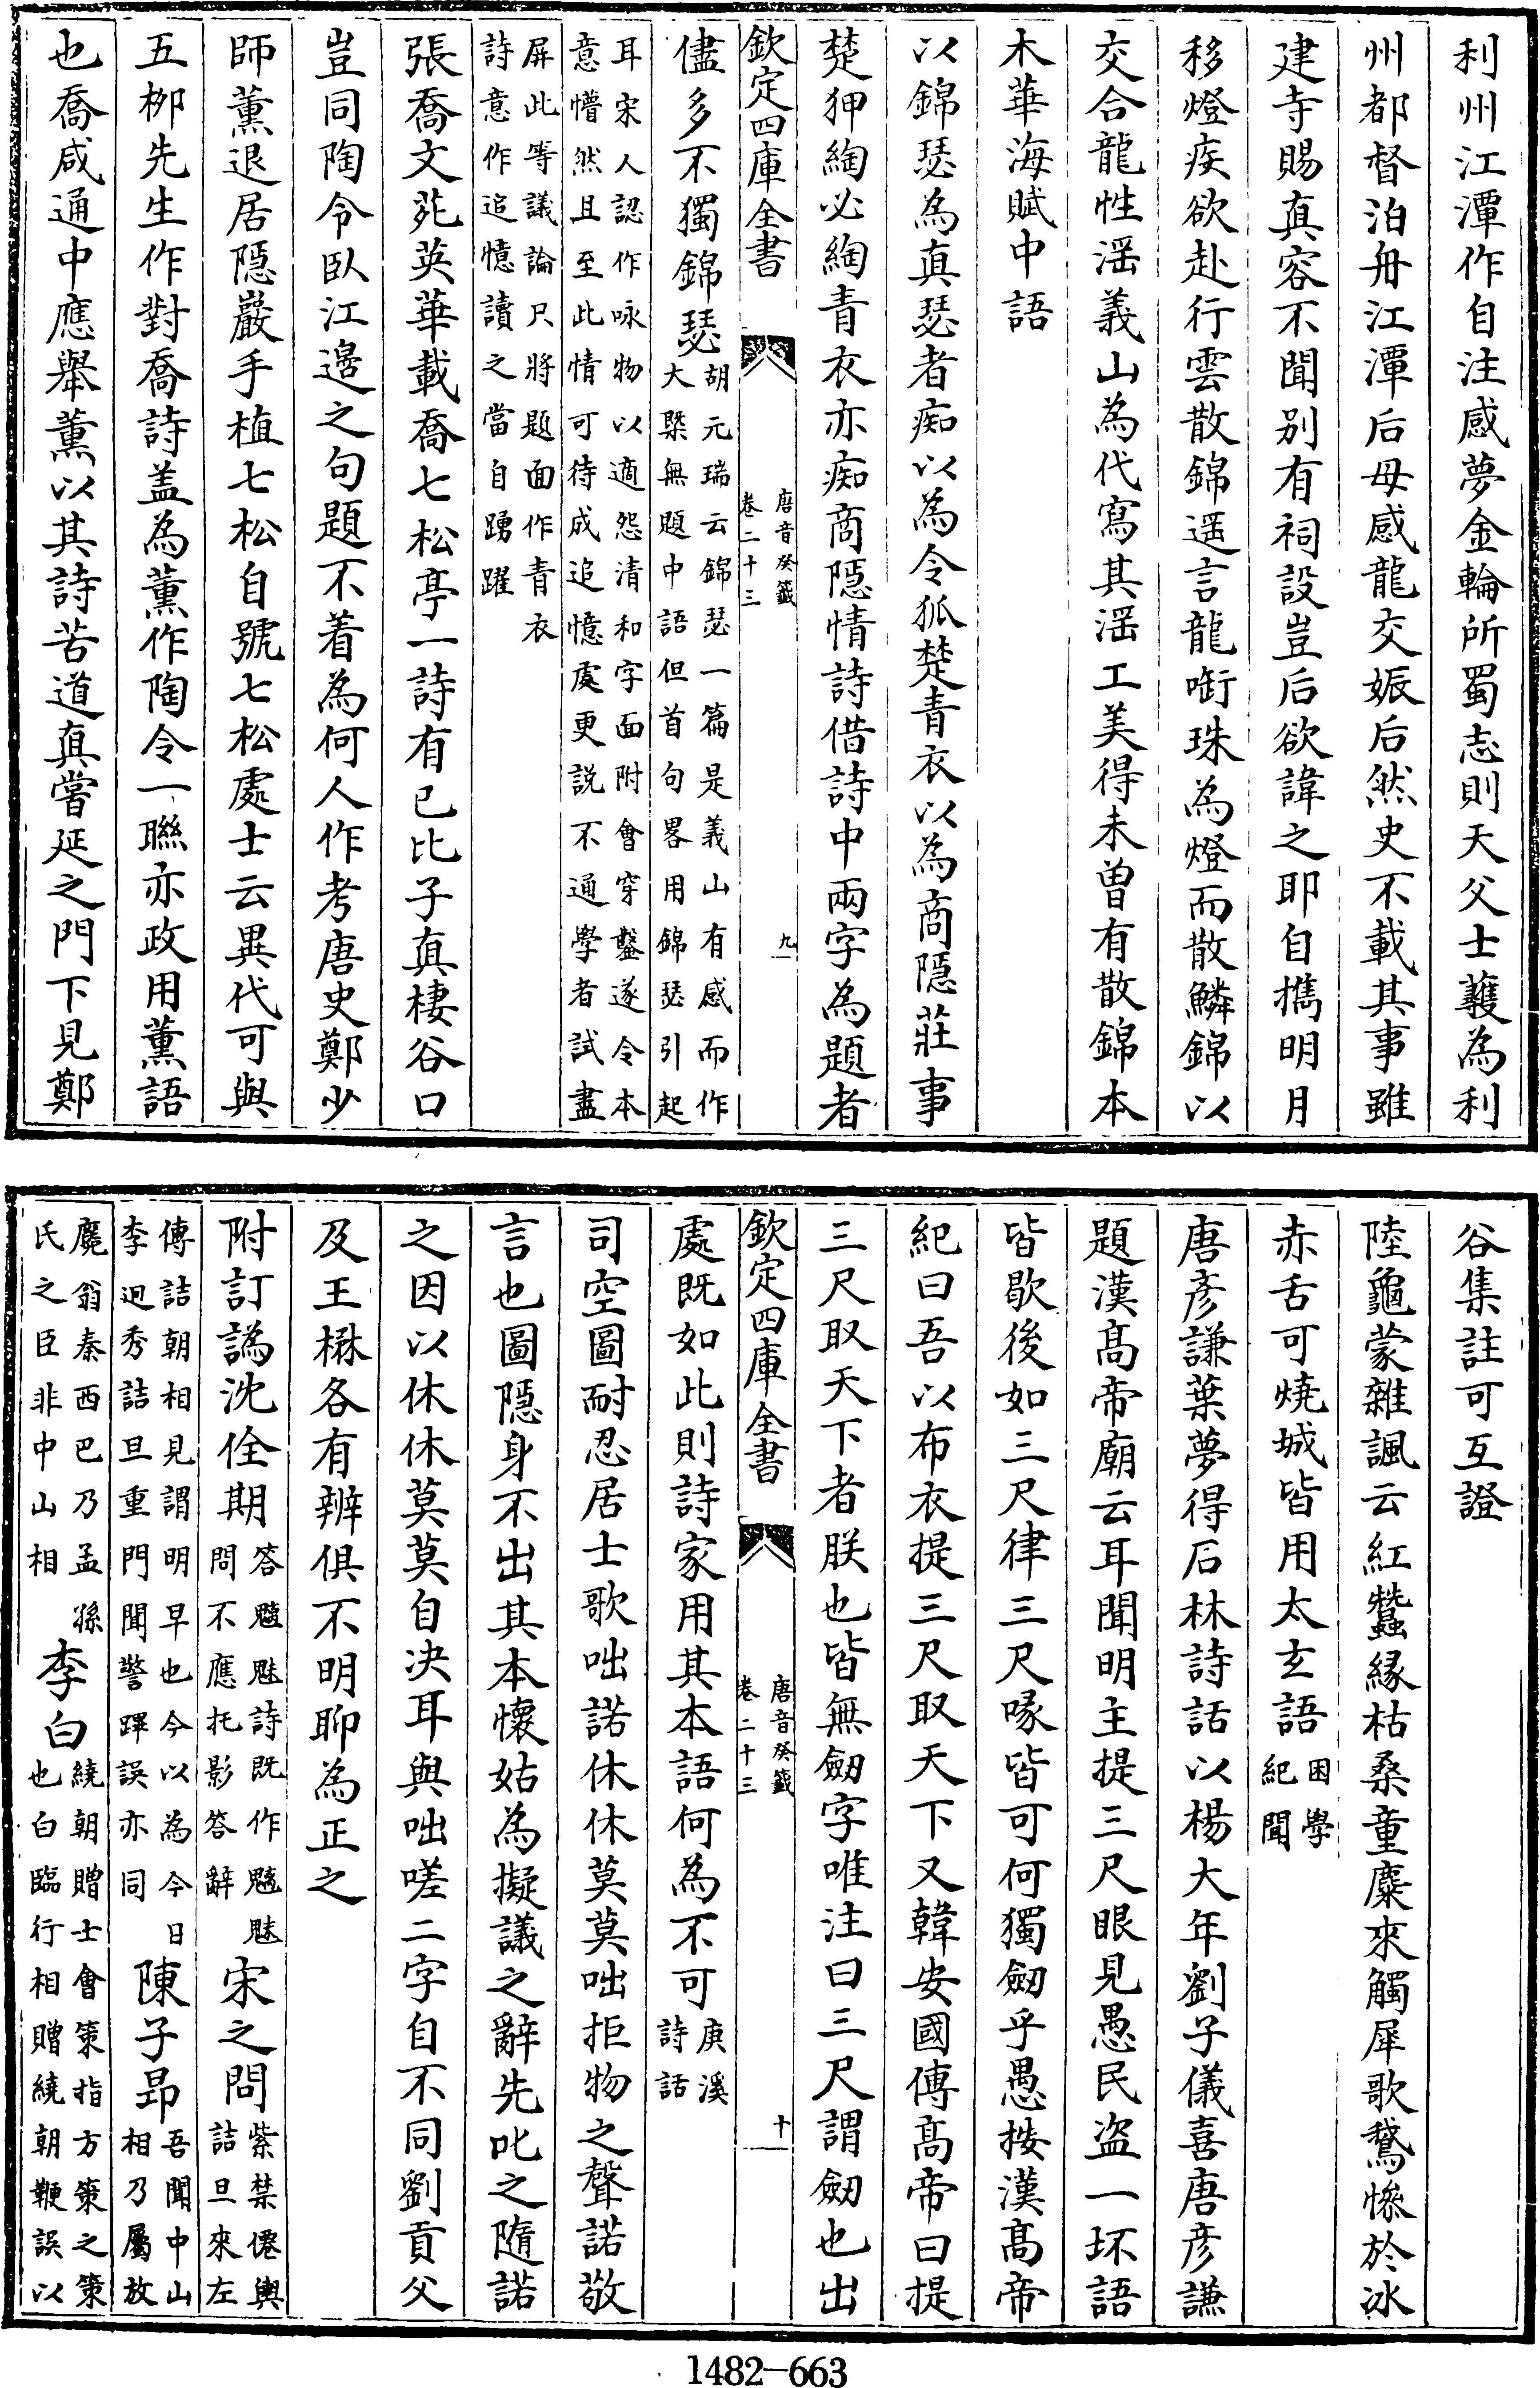 利州江潭作自注感夢金輪所蜀志則天父士彠為利
州都督泊舟江潭后母感龍交娠后然史不載其事雖
建寺賜真容不聞别有祠設豈后欲諱之耶自攜明月
移燈疾欲赴行雲散錦遥言龍㗸珠為燈而散鱗錦以
交合龍性滛義山為代寫其滛工美得未曾有散錦本
木華海賦中語
以錦瑟為真瑟者痴以為令狐楚青衣以為商隱莊事
楚狎綯必綯青衣亦痴商隱情詩借詩中兩字為題者
欽定四庫全書
唐音癸籤
卷二十三
九
儘多不獨錦瑟
胡元瑞云錦瑟一篇是義山有感而作
大槩無題中語但首句畧用錦瑟引起
耳宋人認作咏物以適怨清和字面附會穿鑿遂令本
意懵然且至此情可待成追憶處更説不通學者試盡
屏此等議論尺將題面作青衣
詩意作追憶讀之當自踴躍
張喬文苑英華載喬七松亭一詩有已比子真棲谷口
豈同陶令臥江邊之句題不着為何人作考唐史鄭少
師薫退居隱巖手植七松自號七松處士云異代可與
五栁先生作對喬詩盖為薫作陶令一聮亦政用薫語
也喬咸通中應舉薫以其詩苦道真嘗延之門下見鄭
谷集註可互證
陸龜蒙雜諷云紅蠶縁枯桑童麋來觸犀歌鵞慘於冰
赤舌可燒城皆用太玄語
困學
紀聞
唐彦謙葉夢得石林詩話以楊大年劉子儀喜唐彦謙
題漢髙帝廟云耳聞明主提三尺眼見愚民盗一坏語
皆歇後如三尺律三尺喙皆可何獨劒乎愚按漢髙帝
紀曰吾以布衣提三尺取天下又韓安國傳髙帝曰提
三尺取天下者朕也皆無劒字唯注曰三尺謂劒也出
欽定四庫全書
唐音癸籤
卷二十三
十
處既如此則詩家用其本語何為不可
庚溪
詩話
司空圖耐忍居士歌咄諾休休莫莫咄拒物之聲諾敬
言也圖隱身不出其本懷姑為擬議之辭先叱之隨諾
之因以休休莫莫自决耳與咄嗟二字自不同劉貢父
及王楙各有辨俱不明聊為正之
附訂譌沈佺期
答魑魅詩既作魑魅
問不應托影答辭
宋之問
紫禁僊輿
詰旦來左
傳詰朝相見謂明早也今以為今日
李迥秀詰旦重門聞警蹕誤亦同
陳子昂
吾聞中山
相乃屬放
麑翁秦西巴乃孟孫
氏之臣非中山相
李白
繞朝贈士會策指方策之策
也白臨行相贈繞朝鞭誤以
1482-663